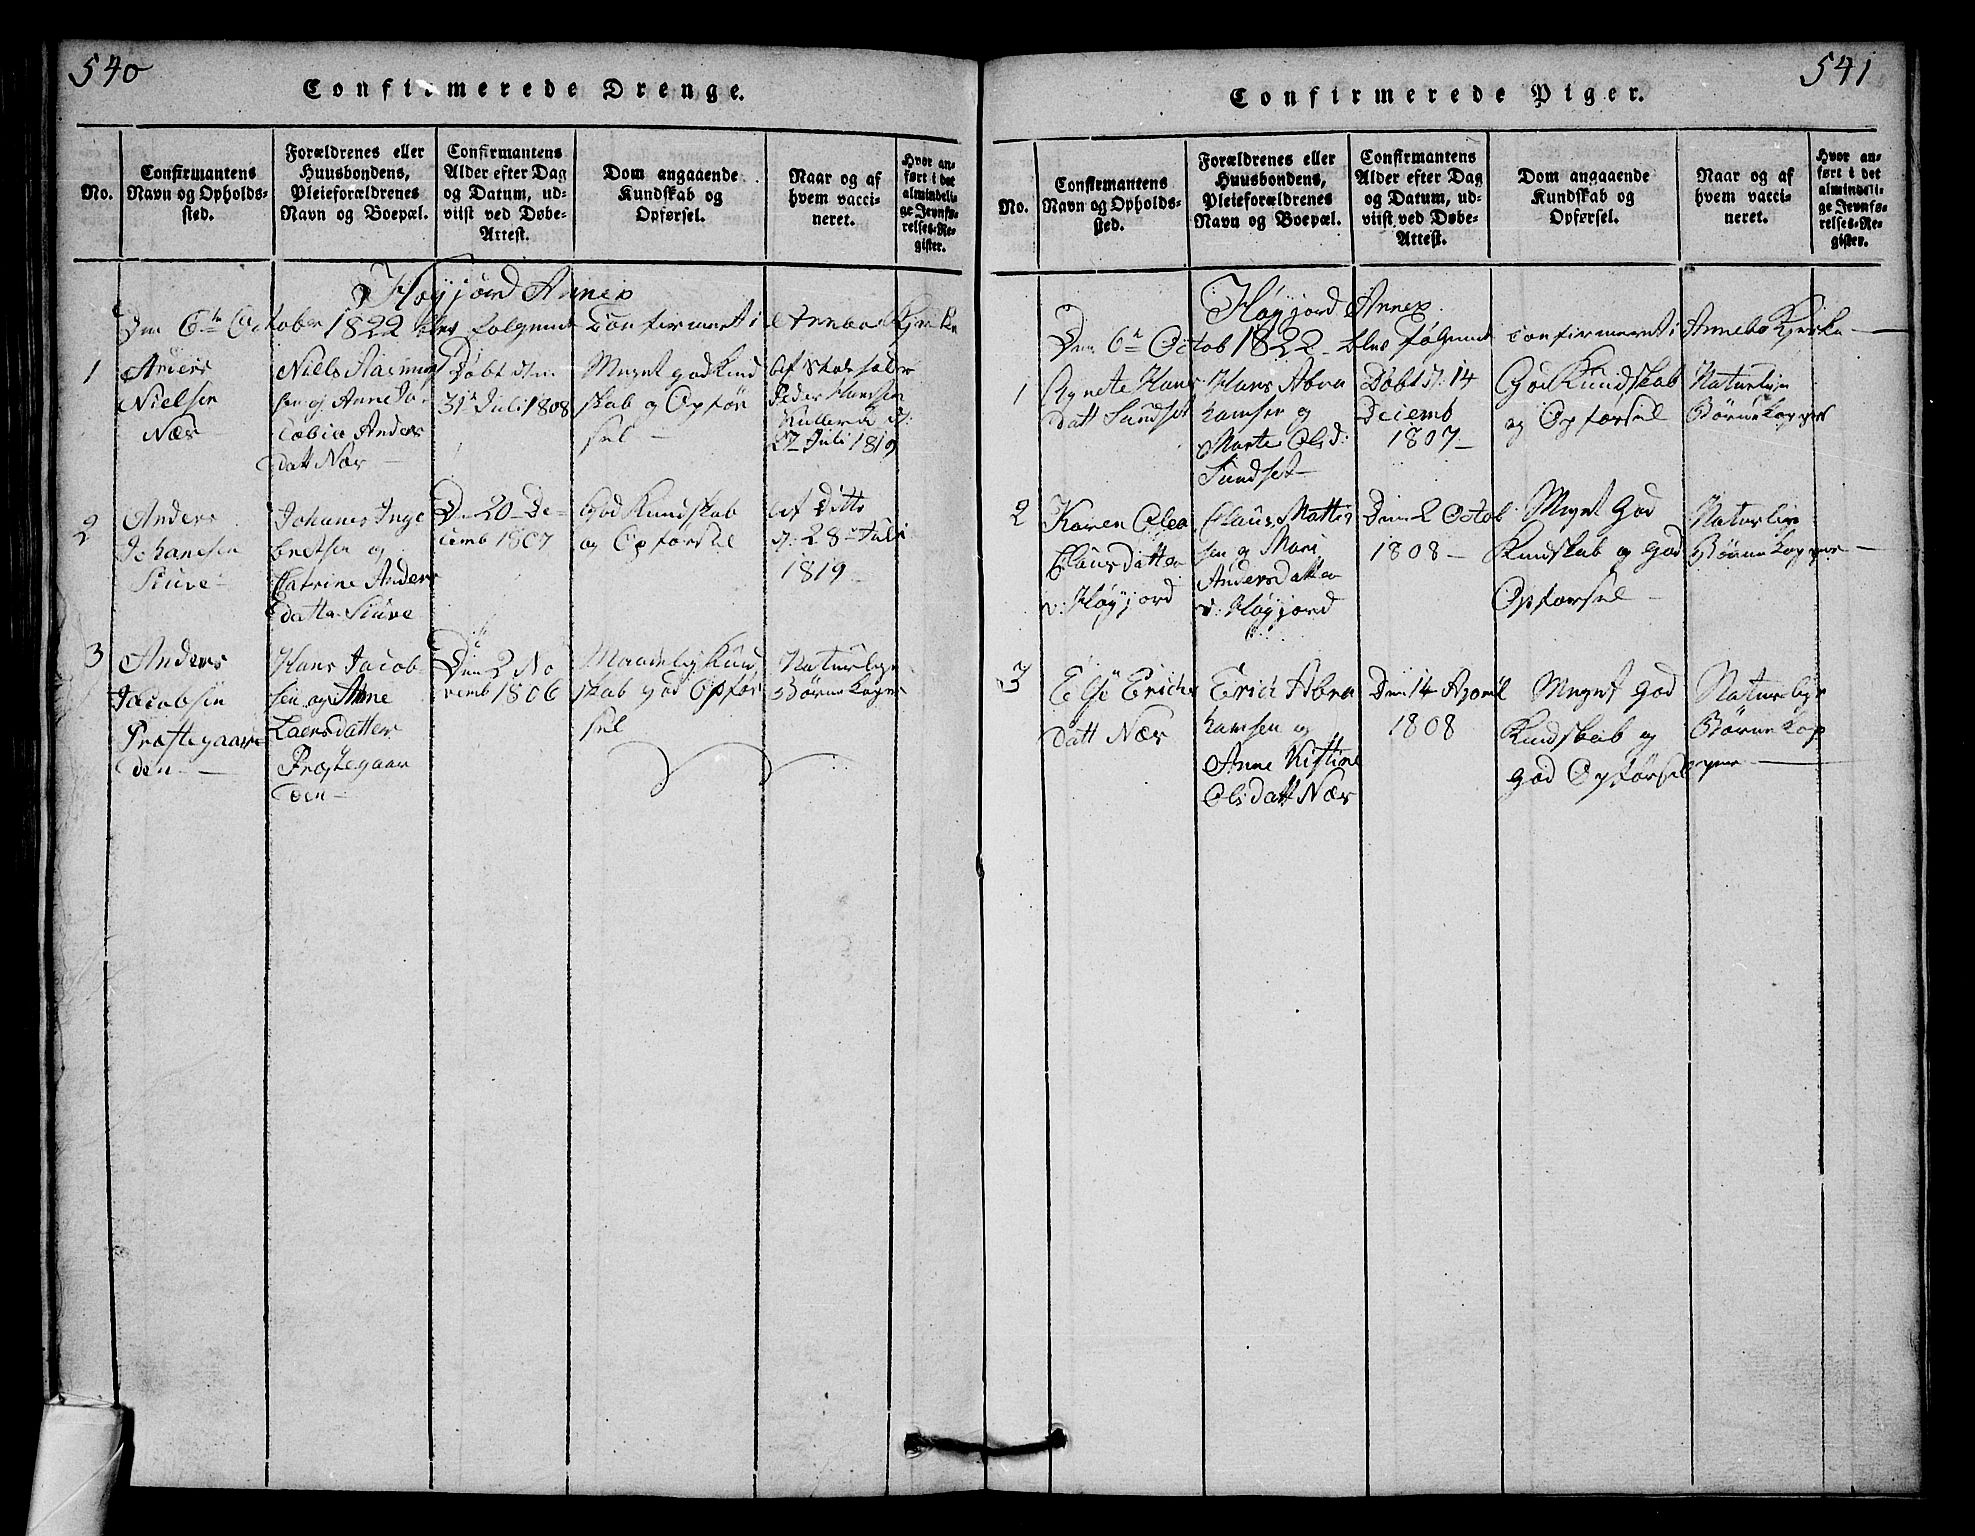 540
Confirmerede Drenge.
No.
Confirmantens
Navn og Opholds-
sted.
Forældrenes eller
Huusbondens,
Pleieforældrenes
Navn og Boepæl.
Confirmantens
Alder efter Dag
og Datum, ud-
viist ved Døbe-
Attest.
Dom angaaende
Kundskab og
Opførsel.
Naar og af
hvem vacci-
neret.
Hvor an-
ført i det
almindeli-
ge Jevnfø-
relses-Re-
gister.
Høyjord Annex
Den 6te October 1822 blev følgende Confirmeret i Annebo Kirke
1
Anders
Nielsen
Nær
Niels Rasmus
sen og Anne Ja-
cobia Anders
datt Nær
Døbt den
31te Juli 1808
Meget god Kund
skab og Opfør
sel
Af
Peder Hansen
d:
27 Juli 1819
2
Anders
Johanesen
Siuve
Johanes Inge
bretsen og
Catrine Anders
datter Siuve
D: 20 De-
cemb 1807
God Kundskab
og Opførsel
Af Ditto
d: 28 Juli
1819
3
Anders
Jacobsen
Præstegaar
den
Hans Jacob
sen og Anne
Laersdatter
Præstegaar
den
Den 2 No
vemb 1806
Maadelig Kund
skab god Opfør
sel
Naturlige
Børne Koper
541
Confirmerede Piger.
No.
Confirmantens
Navn og Opholds-
sted.
Forældrenes eller
Huusbondens,
Pleieforældrenes
Navn og Boepæl.
Confirmantens
Alder efter Dag
og Datum, ud-
viist ved Døbe-
Attest.
Dom angaaende
Kundskab og
Opførsel.
Naar og af
hvem vacci-
neret.
Hvor an-
ført i det
almindeli-
ge Jevnfø-
relses-Re-
gister.
Høyjord Annex
Den 6te Octob 1822 blev følgende confirmeret i Annebo Kirke
1
Agnete Hans
datt Sundset
Hans Abra
hamsen og
Marte Olsd:
Sundset
Døbt d: 14
Decemb
1807
God Kundskab
og Opførsel
Naturlige
Børne Kopper
2
Karen Olea
Clausdatter
v: Høyjord
Claus Mattis
sen og Mari
Andersdatter
v: Høyjord
Den 2 Octob
1808
Meget God
Kundskab og God
Opførsel
Naturlige
Børne Kopper
3
Else Erichs
datt Nær
Erich Abra
hamsen og
Anne Kistine
Olsdatt Nær
Den 14 April
1808
Meget God
Kundskab og
God Opførsel
Naturlige
Børne Kop
per